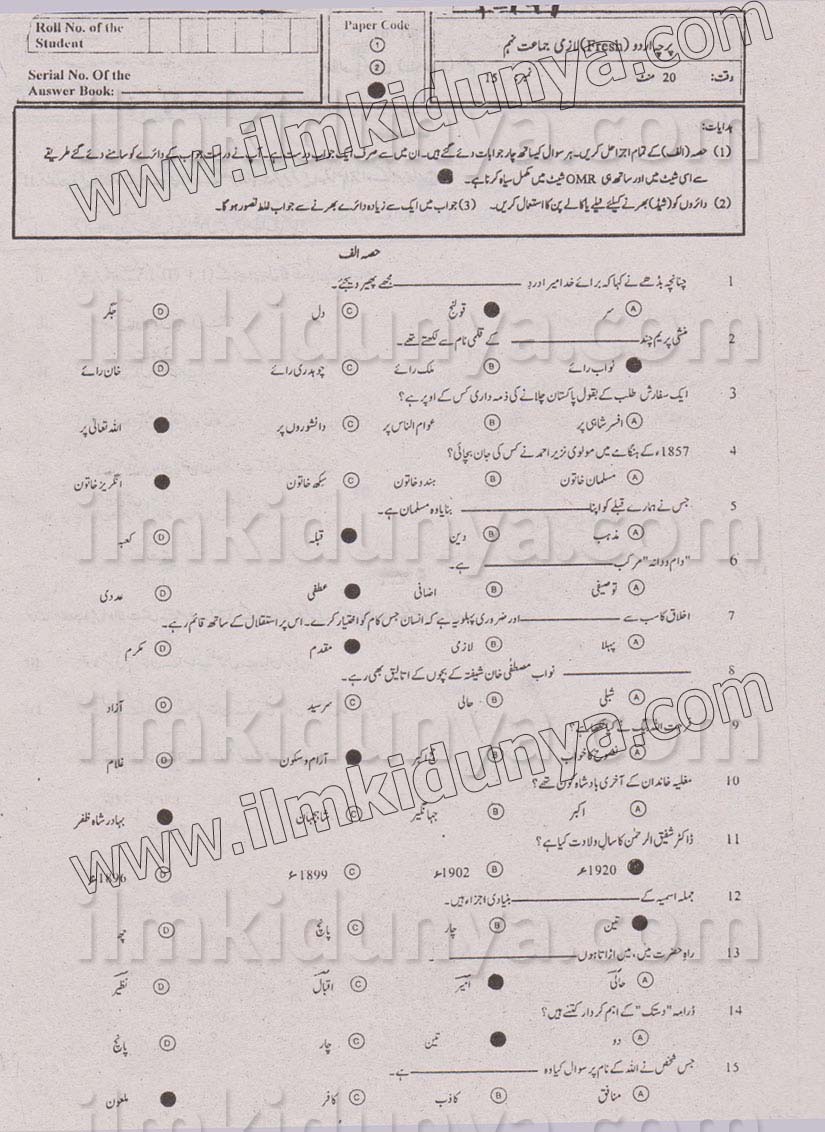 Roll No. of the Student
Paper Code
1
2
پرچہ اردو (Fresh) لازمی جماعت نہم
Serial No. Of the Answer Book:
وقت: 20 منٹ
15
ہدایات:
(1) حصہ (الف) کے تمام اجزا حل کریں۔ ہر سوال کیساتھ چار جوابات دئے گئے ہیں۔ ان میں سے صرف ایک جواب درست ہے۔ آپ نے درست جواب کے دائرے کو سامنے دئے گئے طریقے
سے اسی شیٹ میں اور ساتھ ہی OMR شیٹ میں مکمل سیاہ کرنا ہے۔
(2) دائروں کو (شیڈ) بھرنے کیلئے نیلے یا کالے پن کا استعمال کریں۔ (3) جواب میں ایک سے زیادہ دائرے بھرنے سے جواب غلط تصور ہوگا۔
حصہ الف
1 چنانچہ بڈھے نے کہا کہ برائے خدا میرا درد ________ مجھے پھیر دیجئے۔
A سر قولنج C دل D جگر
2 منشی پریم چند ________ کے قلمی نام سے لکھتے تھے۔
نواب رائے B ملک رائے C چوہدری رائے D خان رائے
3 ایک سفارش طلب کے بقول پاکستان چلانے کی ذمہ داری کس کے اوپر ہے؟
A افسر شاہی پر B عوام الناس پر C دانشوروں پر اللہ تعالٰی پر
4 1857ء کے ہنگامے میں مولوی نزیر احمد نے کس کی جان بچائی؟
A مسلمان خاتون B ہندو خاتون C سکھ خاتون انگریز خاتون
5 جس نے ہمارے قبلے کو اپنا ________ بنایا وہ مسلمان ہے۔
A مذہب B دین قبلہ D کعبہ
6 "دام و دانہ" مرکب ________ ہے۔
A توصیفی B اضافی عطفی D عددی
7 اخلاق کا سب سے ________ اور ضروری پہلو یہ ہے کہ انسان جس کام کو اختیار کرے۔ اس پر استقلال کے ساتھ قائم رہے۔
A پہلا B لازمی مقدم D مکرم
8 ________ نواب مصطفٰی خان شیفتہ کے بچوں کے اتالیق بھی رہے۔
A شبلی B حالی C سرسید D آزاد
9
A نصوح کا خواب B آرام و سکون D غلام
10 مغلیہ خاندان کے آخری بادشاہ کون تھے؟
A اکبر B جہانگیر C شاہجہان بہادر شاہ ظفر
11 ڈاکٹر شفیق الرحمٰن کا سال ولادت کیا ہے؟
1920ء B 1902ء C 1899ء D 1896ء
12 جملہ اسمیہ کے ________ بنیادی اجزاء ہیں۔
تین B چار C پانچ D چھ
13 راہِ حضرت میں، میں اڑاتا ہوں ________ ۔
A حالی امیر C اقبال D نظیر
14 ڈرامہ "دستک" کے اہم کردار کتنے ہیں؟
A دو تین C چار D پانچ
15 جس شخص نے اللہ کے نام پر سوال کیا وہ ________ ہے۔
A منافق B کاذب C کافر ملعون
www.ilmkidunya.com
www.ilmkidunya.com
www.ilmkidunya.com
ilmkidunya.com
ilmkidunya.com
ilmkidunya.com
ilmkidunya.com
ilmkidunya.com
ilmkidunya.com